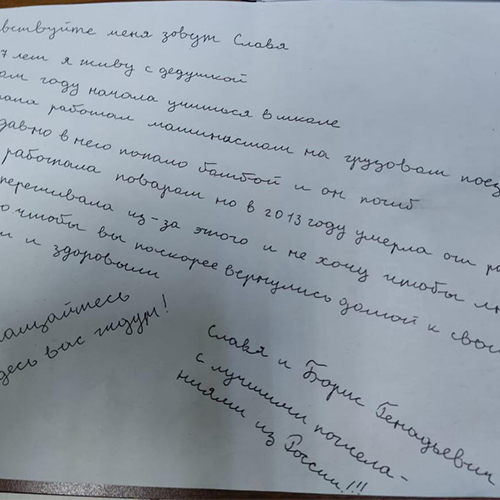 вствуйте меня зовут Славя
7 лет я живу с дедушкой
ом году начала учиться в школе
папа работал машинистом на грузовом поез
давно в него попало бомбой и он погиб
работала поваром но в 2013 году умерла от ра
переживала из-за этого и не хочу чтобы лю
о чтобы вы поскорее вернулись домой к свои
и и здоровыми
ращайтесь
десь вас ждут!
Славя и Борис Генадьевич
с лучшими пожела-
ниями из России!!!